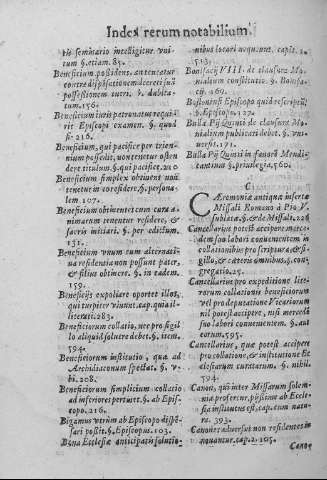 Index rerum notabilium.
tis seminario intelligitur vni-
tum §. etiam. 85.
Beneficium possidens, an teneatur
contra dispensationem docere suũ
possessionem iuris. §. dubita-
tum. 156.
Beneficium iuris patronatus requi-
rit Episcopi examen. §. quod
si. 216.
Beneficium, qui pacifice per trien-
nium possedit, non tenetur osten-
dere titulum. §. qui pacifice. 210
Beneficium simplex obtinens non
tenetur in eo residere. §. persona-
lem 107.
Beneficium obtinentes cum cura a-
nimarum tenentur residere, &
sacris initiari. §. per edictum.
131.
Beneficium vnum cum alternati-
ua residentia non possunt pater,
& filius obtinere. §. in eadem.
159.
Beneficijs expoliare oportet illos,
qui turpiter viuunt. cap. quia il-
literati. 283.
Beneficiorum collatio, nec pro sigil
lo aliquid soluere debet. §. item.
594.
Beneficiorum institutio, qua ad
Archidiaconum spectat. §. v-
bi. 208.
Beneficiorum simplicium collatio
ad inferiores pertinet. §. ab Epis-
copo. 216.
Bigamus vtrum ab Episcopo dispē-
sari possit. §. Episcopus. 103.
Bona Ecclesiæ anticipata solutio-
nibus locari nequeunt. capit.
513.
Bonifacij VIII. de clausura Mo-
nialium constitutio. §. Bonifa-
cij. 169.
Bostoniensi Episcopo quid rescriptũ
§. Episcopo. 127.
Bulla Pij Quinti de clausura Mo-
nialium publicari debet. §. vni-
uersis. 171.
Bulla Pij Quinti in fauorē Mendi-
cantium §. priuilegia. 560.
C
CÆremonia antiqua inserta
Missali Romano à Pio V.
sublata. §. & de Missali. 226
Cancellarius potest accipere merce-
dem suo labori conuenientem in
collationibus pro scriptura, & si-
gillo, & cæteris omnibus. §. con-
gregatio. 25.
Cancellarius pro expeditione litte-
rarum collationis beneficiorum
vel pro deputatione Vicariorum
nil potest accipere, nisi mercedē
suo labori conuenientem. §. aut
eorum. 595.
Cancellarius, quæ potest accipere
pro collatione, & institutione Ec-
clesiarum curatarum. §. nihil.
594.
Canes, qui inter Missarum solem-
nia proseretur, pijssime ab Eccle-
sia institutus est. cap. cum natu-
ra. 393.
Canones aduersus non residentes in-
nouantur. cap. 2. 105.
Canon